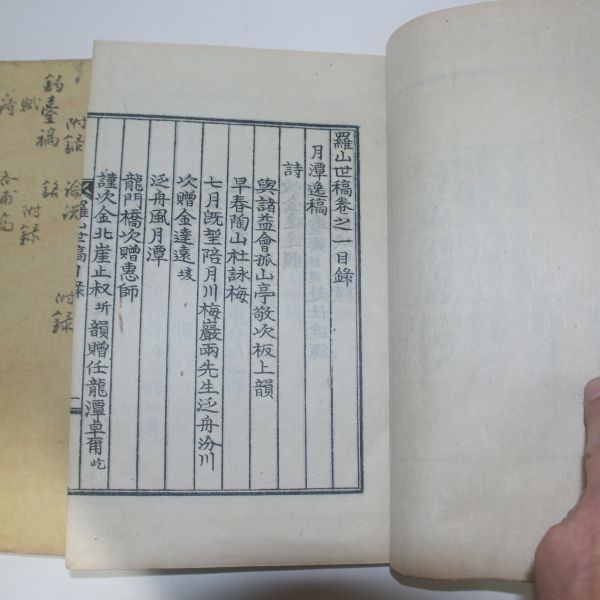 羅山世稿卷之一目錄
月潭逸稿
詩
與諸益會孤山亭敬次板上韻
早春陶山社詠梅
七月旣望陪月川梅巖兩先生泛舟汾川
次贈金達遠垓
泛舟風月潭
龍門橋次贈惠師
謹次金北崖止叔圻韻贈任龍潭卓爾屹
羅山世稿目錄
一
附錄
附錄
釣臺稿
銘
賦
附錄
詩